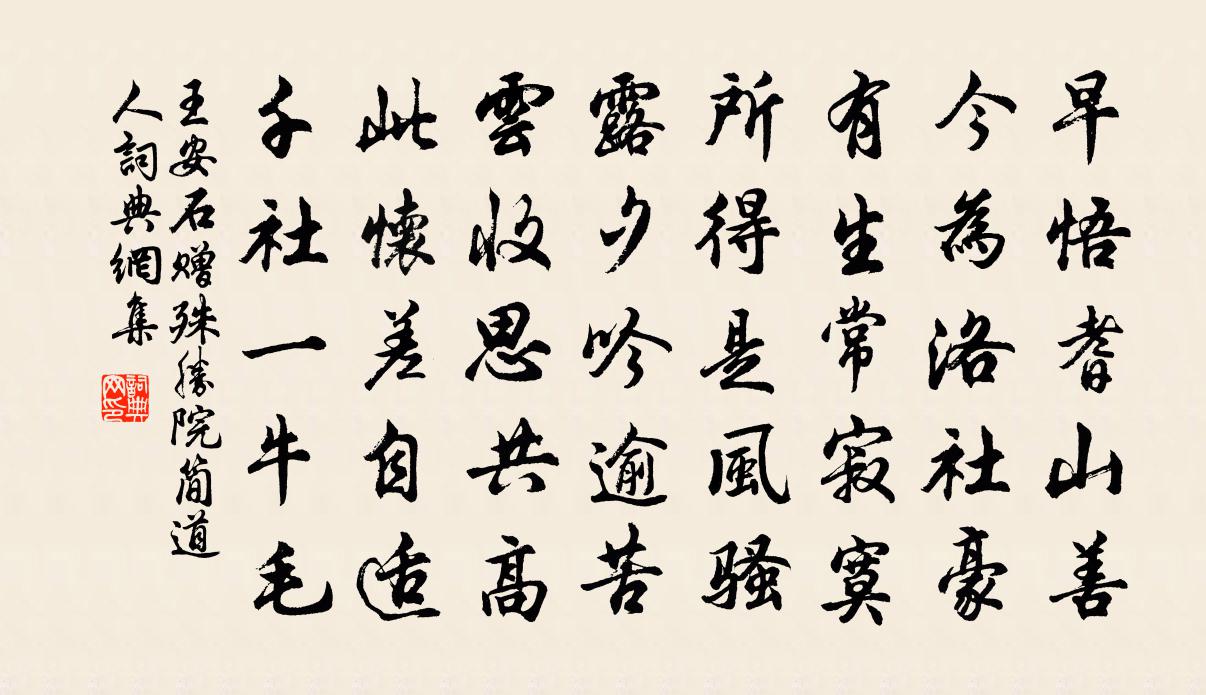 早悟耆山善
今為洛社豪
有生常寂寞
所得是風騷
露夕吟逾苦
雲收思共高
此懷差自適
千社一牛毛
王安石贈殊勝院簡道
人詞典網集
詞典
网印